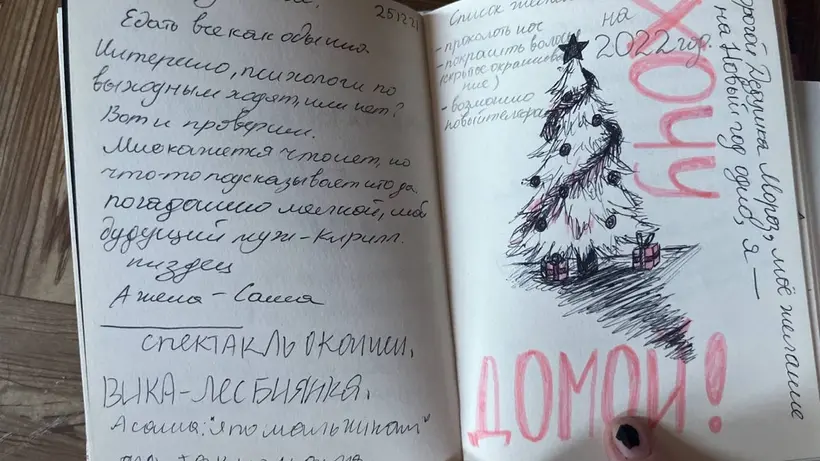 251221
Едать все как обычно
Интересно, психологи по
выходным ходят, или нет?
Вот и проверим.
Мне кажется что нет, но
что-то подсказывает что да.
погадашно мялкой, мой
будущий муж - Кирилл.
пиздец
А жена - Саша
спектакль окончен.
ВИКА - ЛЕСБИЯНКА.
А саша: "я по мальчикам"
Список
на
2022 год.
- проколоть нос
- покрасить волосы
- возможно
новый телефон
ХОЧУ
ДОМОЙ!
Дедушка Мороз, моё желание
на Новый год одно, я —